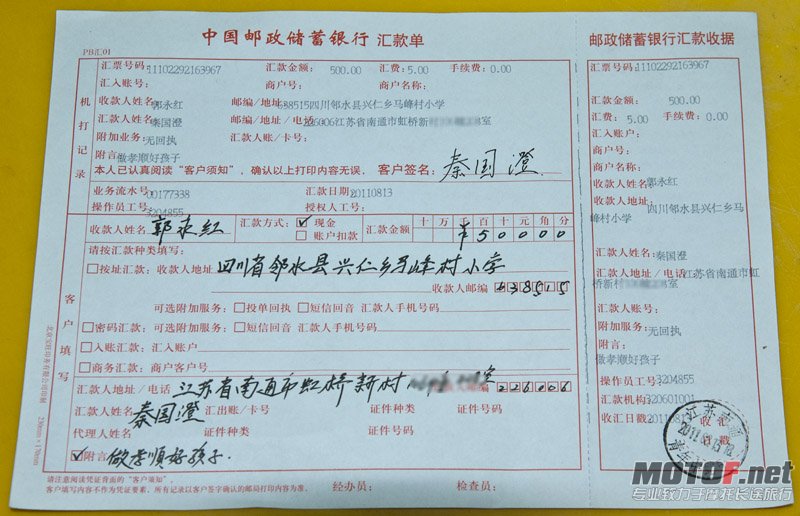 中国邮政储蓄银行 汇款单
PB汇01
汇票号码:11102292163967 汇款金额: 500.00 汇费:5.00 手续费:0.00
汇入账号: 商户号: 商户名称:
收款人姓名:郭永红 邮编/地址:638515四川邻水县兴仁乡马峰村小学
汇款人姓名:秦国澄 邮编/地址/电话:226006江苏省南通市虹桥新村 室
附加业务:无回执 汇款人账/卡号:
附言:做孝顺好孩子
本人已认真阅读“客户须知”,确认以上打印内容无误。 客户签名: 秦国澄
业务流水号:00177338 汇款日期:20110813
操作员工号:3204855 授权人工号:
机打记录
收款人姓名 郭永红 汇款方式: 现金 账户扣款 汇款金额 十万千百十元角分
¥50000
请按汇款种类填写:
按址汇款:收款人地址 四川省邻水县兴仁乡马峰村小学
收款人邮编 638515
可选附加服务: 投单回执 短信回音 汇款人手机号码
密码汇款:可选附加服务: 短信回音 汇款人手机号码
入账汇款: 汇入账户
商务汇款: 商户客户号
汇款人地址/电话 江苏省南通市虹桥新村 室 邮编 226006
汇款人姓名 秦国澄 汇出账/卡号 证件种类 证件号码
代理人姓名 证件种类 证件号码
附言 做孝顺好孩子.
客户填写
请注意阅读凭证背面的“客户须知”。
客户填写内容不作为凭证要素,所有记录以客户签字确认的邮局打印内容为准。
经办员: 检查员:
邮政储蓄银行汇款收据
汇票号码:11102292163967
汇款金额: 500.00
汇费: 5.00 手续费:0.00
汇入账户:
商户号:
商户名称:
收款人姓名:郭永红
收款人地址:四川邻水县兴仁乡马峰村小学
汇款人姓名:秦国澄
汇款人地址/电话:江苏省南通市虹桥新村 室
汇款人账号:
附加业务:无回执
附言:做孝顺好孩子
操作员工号:3204855
汇款机构:320601001
收汇日期:20110813
收汇日戳
江苏南通
MOTOF.net
专业致力于摩托长途旅行